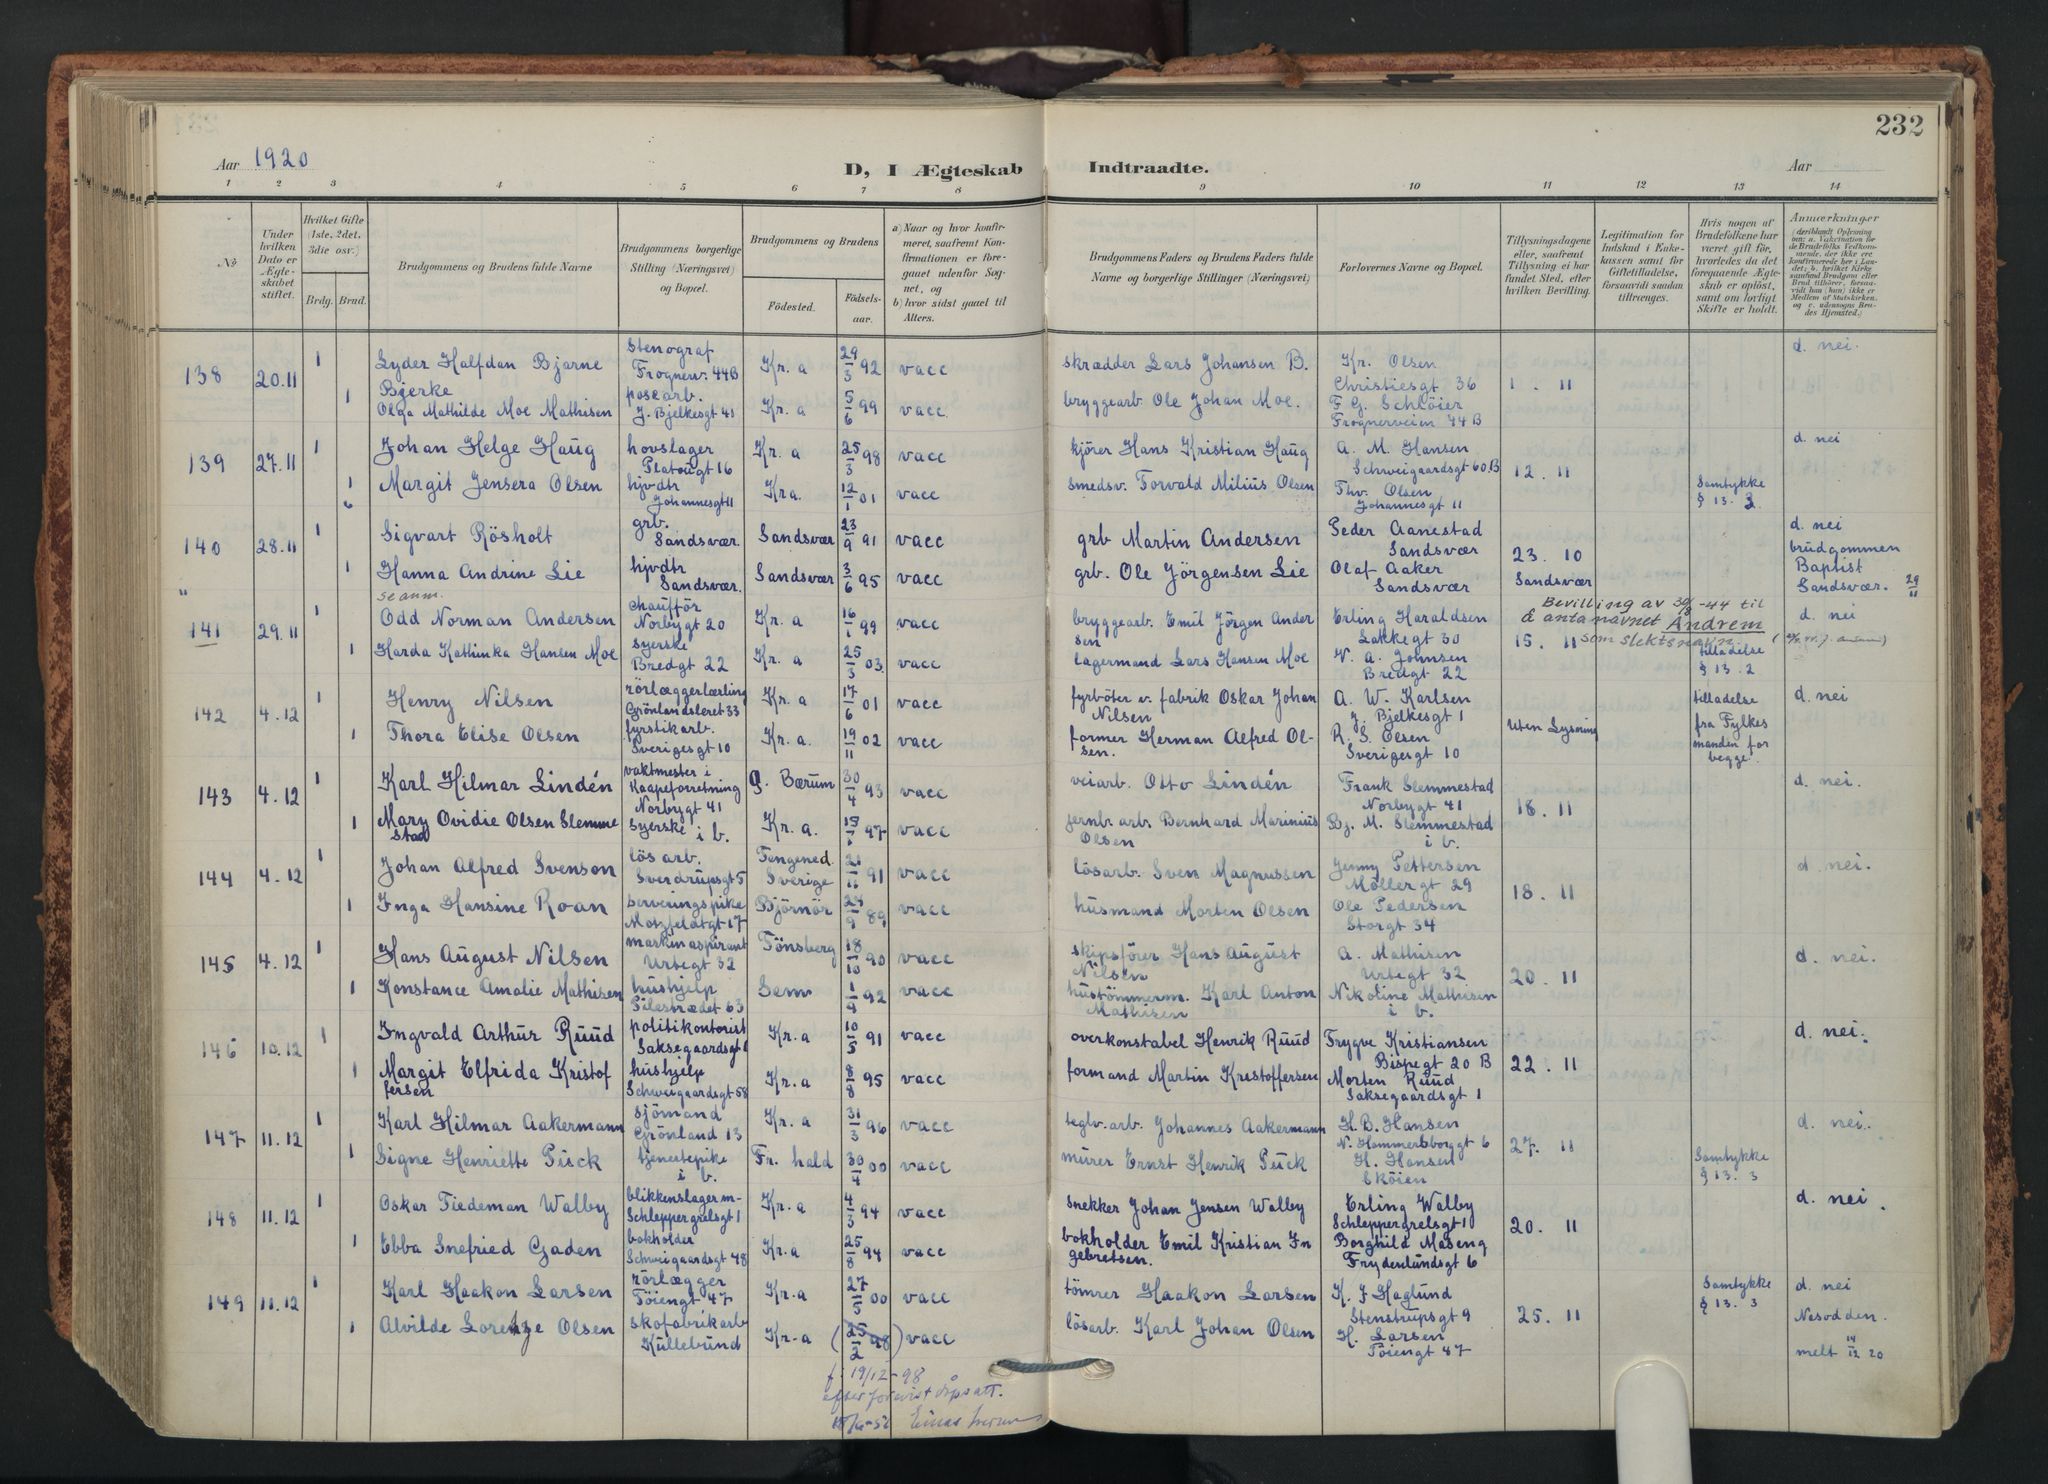 232
Aar 1920
D, I Ægteskab Indtraadte.
Aar
1 2 3 4 5 6 7 8 9 10 11 12 13 14
No
Under hvilken Dato er Ægteskabet stiftet.
Hvilket Gifte (1ste, 2det, 3die osv.)
Brdg. Brud.
Brudgommens og Brudens fulde Navne
Brudgommens borgerlige Stilling (Næringsvei) og Bopæl.
Brudgommens og Brudens
Fødested.
Fødselsaar.
a) Naar og hvor konfirmeret, saafremt Konfirmationen er foregaaet udenfor Sognet, og
b) hvor sidst gaaet til Alters.
Brudgommens Faders og Brudens Faders fulde Navne og borgerlige Stillinger (Næringsvei)
Forlovernes Navne og Bopæl.
Tillysningsdagene eller, saafremt Tillysning ei har fundet Sted, efter hvilken Bevilling.
Legitimation for Indskud i Enkekassen samt for Giftetilladelse, forsaavidt saadan tiltrænges.
Hvis nogen af Brudefolkene har været gift før, hvorledes da det foregaaende Ægteskab er opløst, samt om lovligt Skifte er holdt.
Anmærkninger (deriblandt Oplysning om: a. Vakcination for de Brudefolks Vedkommende, der ikke ere konfirmerede her i Landet; b. hvilket Kirkesamfund Brudgom eller Brud tilhører, forsaavidt han (hun) ikke er Medlem af Statskirken, og c. udensogns Brudes Hjemsted.)
138 20.11 1 Lyder Halfdan Bjarne Bjerke stenograf Frognerv. 44B Kr. a 29/3 92 vacc skrædder Lars Johansen B. Kr. Olsen Christiesgt 36 1. 11 d. nei.
1 Olga Mathilde Moe Mathisen posearb. J. Bjelkesgt 41 Kr. a 5/6 99 vacc. bryggearb. Ole Johan Moe. F. G. Schlöier Frognerveien 44B
139 27.11 1 Johan Helge Haug hovslager Platougt 16 Kr. a 25/3 98 vacc kjører Hans Kristian Haug A. M. Hansen Schweigaardsgt 60.B 12. 11 d. nei
1 Margit Jensera Olsen hjvdtr Johannesgt 11 Kr a. 12/1 01 vacc smedsv. Torvald Milius Olsen Thv. Olsen Johannesgt 11 Samtykke § 13. 3
140 28.11 1 Sigvart Rösholt grb. Sandsvær. Sandsvær 23/9 91 vacc grb Martin Andersen Peder Aanestad Sandsvær 23. 10 Sandsvær d. nei brudgommen Baptist
1 Hanna Andrine Lie hjvdtr Sandsvær. Sandsvær 3/6 95 vacc grb. Ole Jörgensen Lie Olaf Aaker Sandsvær Sandsvær. 29/11
" se anm.
Bevilling av 30/8-44 til å anta navnet Andrem som slektsnavn.
141 29.11 1 Odd Norman Andersen chauffør Norbygt 20 Kr. a 16/1 99 vacc bryggearb. Emil Jörgen Andersen Erling Haraldsen Lakkegt 30 15. 11 d. nei
1 Harda Kathinka Hansen Moe syerske Bredgt 22 Kr. a 25/3 03. vacc lagermand Lars Hansen Moe V. A. Johnsen Bredgt 22 tilladelse § 13. 2
142 4.12 1 Henry Nilsen rörlæggerlærling Grönlandsleret 33 Kr. a 17/6 01 vacc fyrböter v. fabrik Oskar Johan Nilsen A. W. Karlsen J. Bjelkesgt 1 uten Lysning tilladelse fra Fylkesmanden for begge. d. nei
1 Thora Elise Olsen fyrstikarb. Sverigesgt 10 Kr. a. 19/11 02 vacc former Herman Alfred Olsen. R. S. Olsen Sverigesgt 10
143 4.12 1 Karl Hilmar Lindén vaktmester i Kaapeforretning Norbygt 41 Ø. Bærum 30/4 93 vacc veiarb. Otto Lindén Frank Slemmestad Norbygt 41 18. 11 d. nei.
1 Mary Ovidie Olsen Slemmestad syerske i b. Kr. a. 15/1 97 vacc jernb. arb. Bernhard Marinius Olsen Bj. M. Slemmestad i b.
144 4.12 1 Johan Alfred Svenson lös arb. Sverdrupsgt 5 Tengened. Sverige 21/11 91 vacc lösarb. Sven Magnussen Jenny Pettersen Möllergt 29 18. 11 d. nei.
1 Inga Hansine Roan serveringspike Motzfeldtgt 17 Björnör 24/9 89 vacc husmand Morten Olsen Ole Pedersen Storgt 34
145 4.12 1 Hans August Nilsen maskinaspirant Urtegt 32 Tönsberg 18/10 90 vacc skipsförer Hans August Nilsen A. Mathisen Urtegt 32 20. 11 d. nei.
1 Konstance Amalie Mathisen hushjelp Pilestrædet 63 Sem 1/4 92 vacc hustömmerm. Karl Anton Mathisen Nikoline Mathisen i b.
146 10.12 1 Ingvald Arthur Ruud politikontorist Saksegaardsgt 1 Kr. a 10/5 91 vacc overkonstabel Henrik Ruud Trygve Kristiansen Bispegt 20 B 22. 11 d. nei.
1 Margit Elfrida Kristoffersen hushjelp Schweigaardsgt 58 Kr. a 8/8 95 vacc formand Martin Kristoffersen Morten Ruud Saksegaardsgt 1
147 11.12 1 Karl Hilmar Aakermann sjömand Grönland 13 Kr. a 31/3 96 vacc teglv. arb. Johannes Aakermann H. B. Hansen N. Hammersborggt 6 27. 11 d. nei.
1 Signe Henriette Puck tjenestepike i b. Fr. hald 30/4 00 vacc murer Ernst Henrik Puck H. Hansen Sköien Samtykke § 13. 3
148 11.12 1 Oskar Tiedeman Walby blikkenslager m- Schleppergrelsgt 1 Kr. a 4/3 94 vacc snekker Johan Jensen Walby Erling Walby Schleppergrelsgt 1 20. 11 d. nei.
1 Ebba Snefried Gaden bokholder Schweigaardsgt 48 Kr. a 25/8 94 vacc bokholder Emil Kristian Ingebretsen. Borghild Maseng Frydenlundsgt 6
149 11.12 1 Karl Haakon Larsen rörlægger Töiengt 47 Kr. a 27/5 00 vacc tömrer Haakon Larsen K. J Haglund Stenstrupsgt 9 25. 11 Samtykke § 13. 3 d. nei
1 Alvilde Lorentze Olsen skofabrikarb Kullebund Kr-a (25/2 98) vacc lösarb. Karl Johan Olsen H. Larsen Töiengt 47 Nesodden. melt 14/12 20
f. 19/12-98
efter forevist dåpsatt.